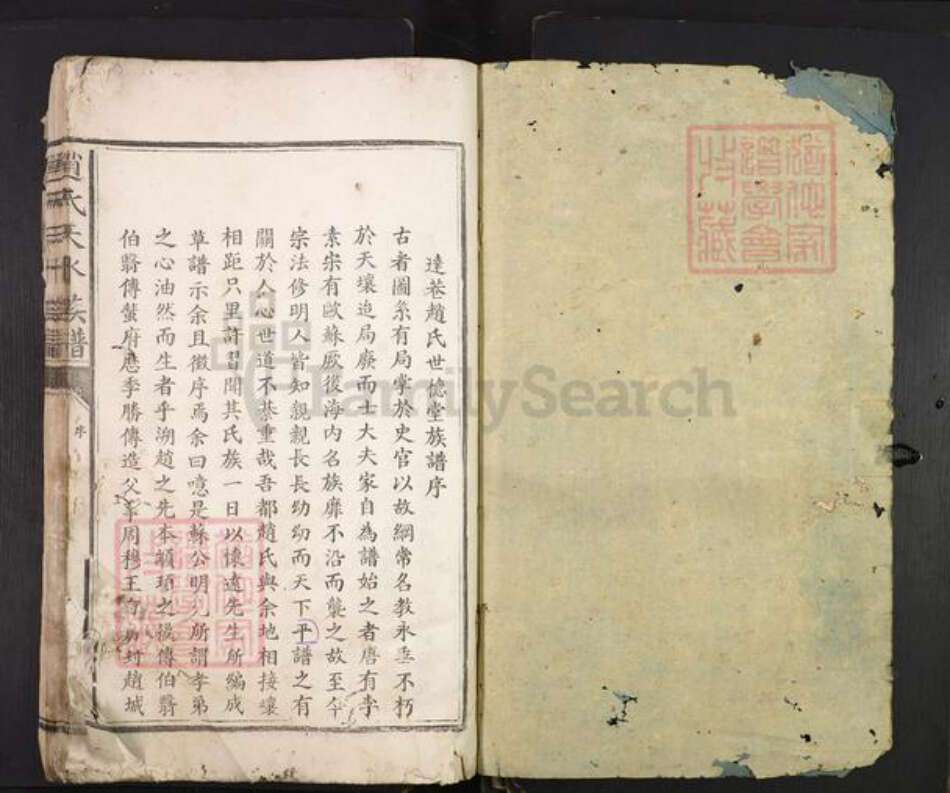 達巷趙氏世德堂族譜序
古者圖系有局掌於史官以故綱常名教永垂不朽
於天壤迨局廢而士大夫家自為譜始之者唐有李
素宋有歐蘇厥後海內名族靡不沿而襲之故至今
宗法修明人皆知親親長長幼幼而天下平譜之有
關於人心世道不綦重哉吾都趙氏與余地相接壤
相距只里許習聞其氏族一日以懷遠先生所編成
草譜示余且徵序焉余曰噫是蘇公明允所謂孝弟
之心油然而生者乎溯趙之先本顓頊之後傳伯翳
伯翳傳蜚府應季勝傳造父幸周穆王有功封趙城
趙氏天水族譜
序
FamilySearch
譜學會
收藏